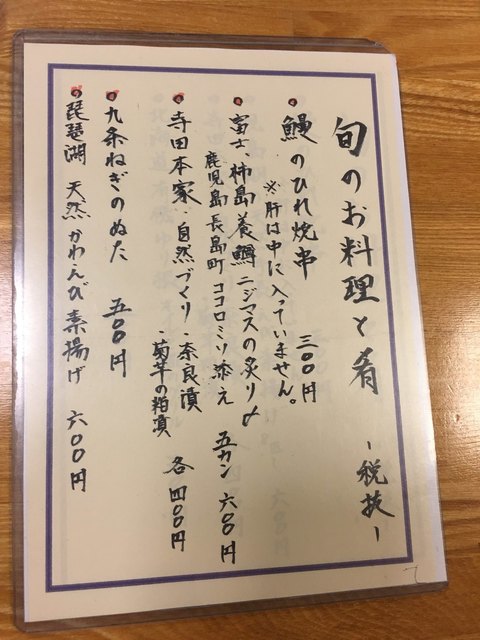 旬のお料理と肴 ー税抜ー
鰻のひれ焼串 三〇〇円
※肝は中に入っていません。
富士、柿島養鱒 ニジマスの炙り〆 五カン 六〇〇円
鹿児島 長島町 ココロミソ添え
寺田本家・自然づくり・奈良漬 各四〇〇円
・菊芋の粕漬
九条ねぎのぬた 五〇〇円
琵琶湖 天然かわえび素揚げ 六〇〇円